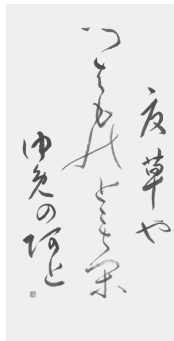 夏草や
つはものともか
ゆ免の阿と